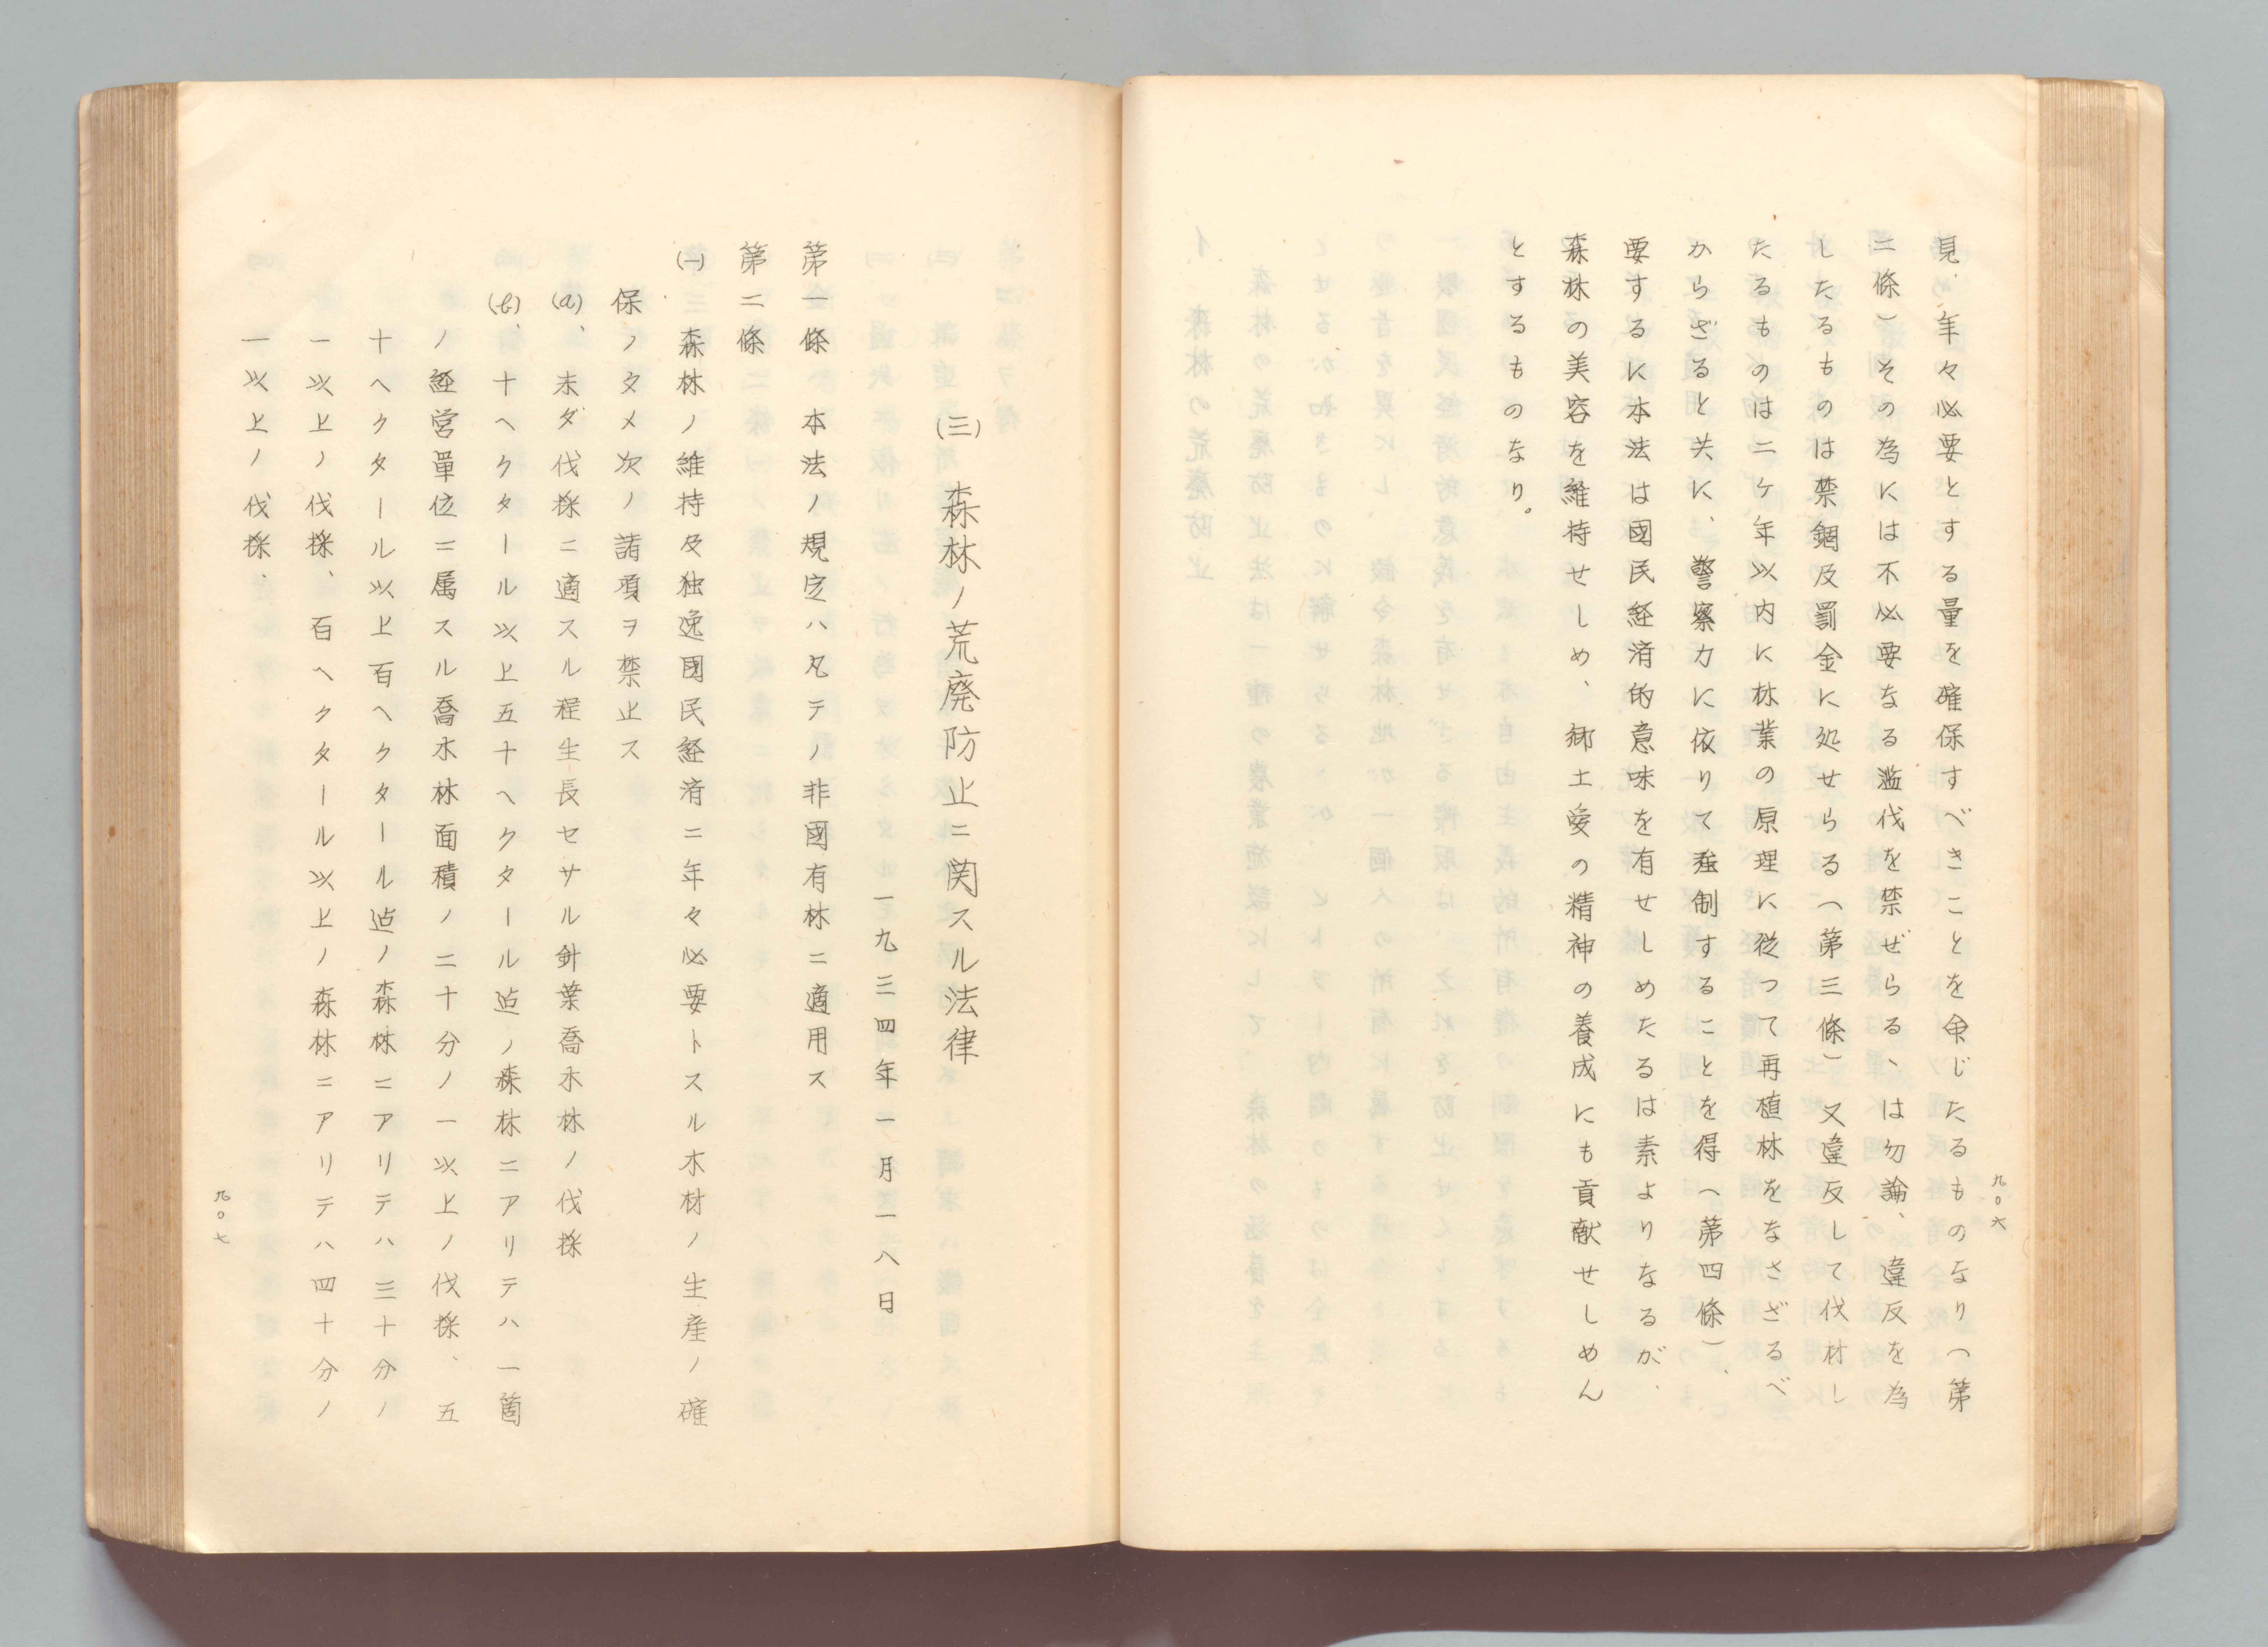 見、年々必要とする量を確保すべきことを命じたるものなり（第
二條）その為には不必要なる濫伐を禁ぜらるゝは勿論、違反を為
したるものは禁錮及罰金に処せらる（第三條）又違反して伐材し
たるものは二ケ年以内に林業の原理に従つて再植林をなさざるべ
からざると共に、警察力に依りて強制することを得（第四條）、
要するに本法は國民経済的意味を有せしめたるは素よりなるが、
森林の美容を維持せしめ、郷土愛の精神の養成にも貢献せしめん
とするものなり。
九〇六
(三) 森林ノ荒廃防止ニ関スル法律
一九三四年一月一八日
第一條 本法ノ規定ハ凡テノ非國有林ニ適用ス
第二條
(一) 森林ノ維持及独逸國民経済ニ年々必要トスル木材ノ生産ノ確
保ノタメ次ノ諸項ヲ禁止ス
(a)、未ダ伐採ニ適スル程生長セサル針葉喬木林ノ伐採
(b)、十ヘクタール以上五十ヘクタール迠ノ森林ニアリテハ一箇
ノ経営單位ニ属スル喬木林面積ノ二十分ノ一以上ノ伐採、五
十ヘクタール以上百ヘクタール迠ノ森林ニアリテハ三十分ノ
一以上ノ伐採、百ヘクタール以上ノ森林ニアリテハ四十分ノ
一以上ノ伐採、
九〇七